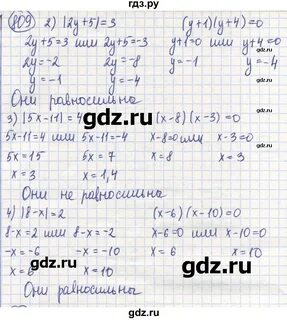 809 2) |2y+5|=3 (y+1)(y+4)=0
2y+5=3 или 2y+5=-3 y+1=0 или y+4=0
2y=-2 2y=-8 y=-1 y=-4
y=-1 y=-4
Они равносильны
3) |5x-11|=4 (x-8)(x-3)=0
5x-11=4 или 5x-11=-4 x-8=0 или x-3=0
5x=15 5x=7 x=8 x=3
x=3 x=1,4
Они не равносильны
4) |8-x|=2 (x-6)(x-10)=0
8-x=2 или 8-x=-2 x-6=0 или x-10=0
-x=-6 -x=-10 x=6 x=10
x=6 x=10
Они равносильны
гдз.ру